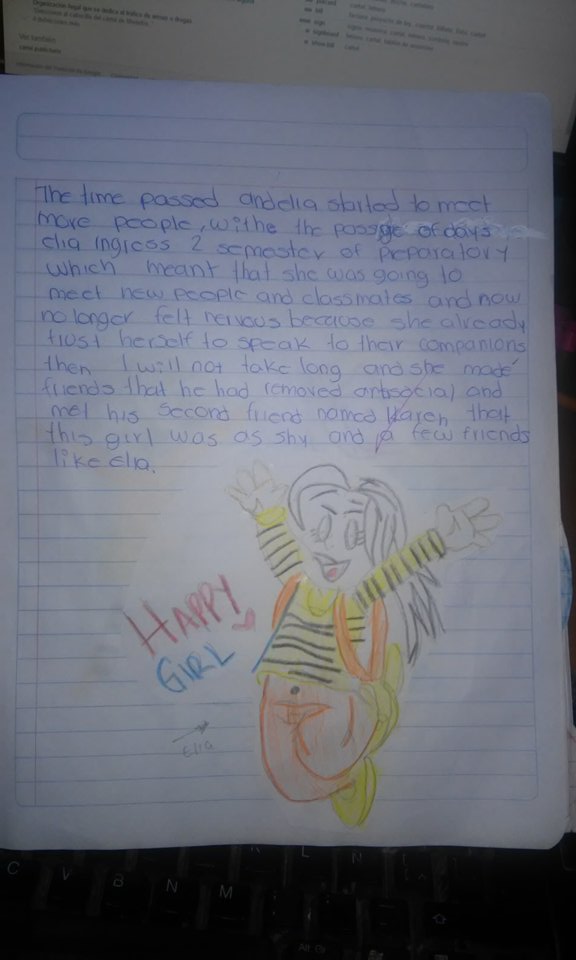 Organización ilegal que se dedica al tráfico de armas o drogas.
Ver también
The time passed andelia started to meet
more people, withe the passge of days
elia ingress 2 semester of preparatory
which meant that she was going to
meet new people and classmates and now
no longer felt nervous because she already
trust herself to speak to their companions
then I will not take long and she made
friends that he had removed antisocial and
met his second friend named Karen that
this girl was as shy and a few friends
like elia.
HAPPY
GIRL
Elia
C V B N M K L Ñ
Alt Gr